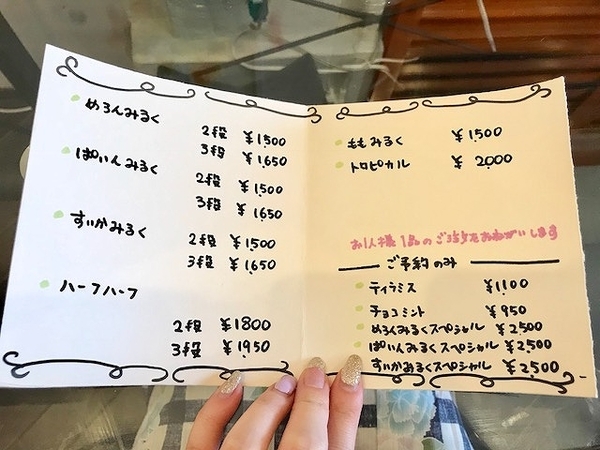 めろんみるく
2段 ¥1500
3段 ¥1,650
ぱいんみるく
2段 ¥1500
3段 ¥1650
すいかみるく
2段 ¥1500
3段 ¥1,650
ハーフハーフ
2段 ¥1800
3段 ¥1950
ももみるく ¥1500
トロピカル ¥2,000
お1人様1品のご注文をおねがいします
ご予約のみ
ティラミス ¥1100
チョコミント ¥950
めろんみるくスペシャル ¥2,500
ぱいんみるくスペシャル ¥2,500
すいかみるくスペシャル ¥2,500